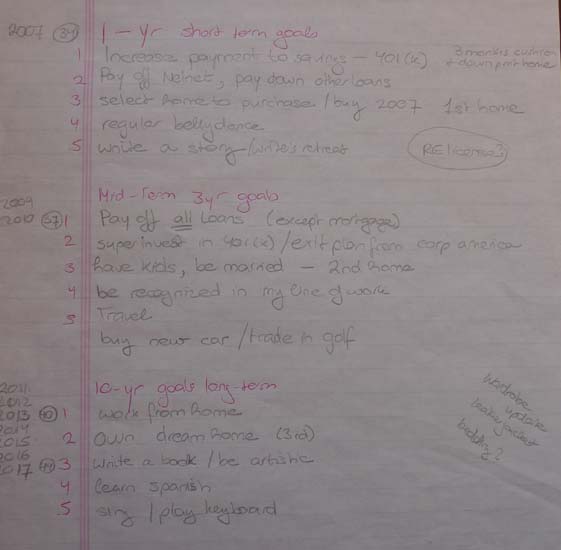 2007 34 1-yr short term goals
1 Increase payment to savings - 401(k) 3 months cushion
+ downpmt home
2 Pay off Nelnet, pay down other loans
3 select home to purchase/buy 2007 1st home
4 regular bellydance
5 write a story/write's retreat
RE license?
2009 Mid-Term 3yr goals
2010 37 1 Pay off all Loans (except mortgage)
2 super invest in 401(k)/exit plan from corp america
3 have kids, be married - 2nd home
4 be recognized in my line of work
5 Travel
buy new car/trade in golf
2011 10-yr goals long-term
2012
2013 40 1 work from home
2014
2015 2 own dream home (3rd)
2016
2017 3 write a book/be artistic
4 learn spanish
5 sing/play keyboard
wardrobe
update
leather jacket
bedding?